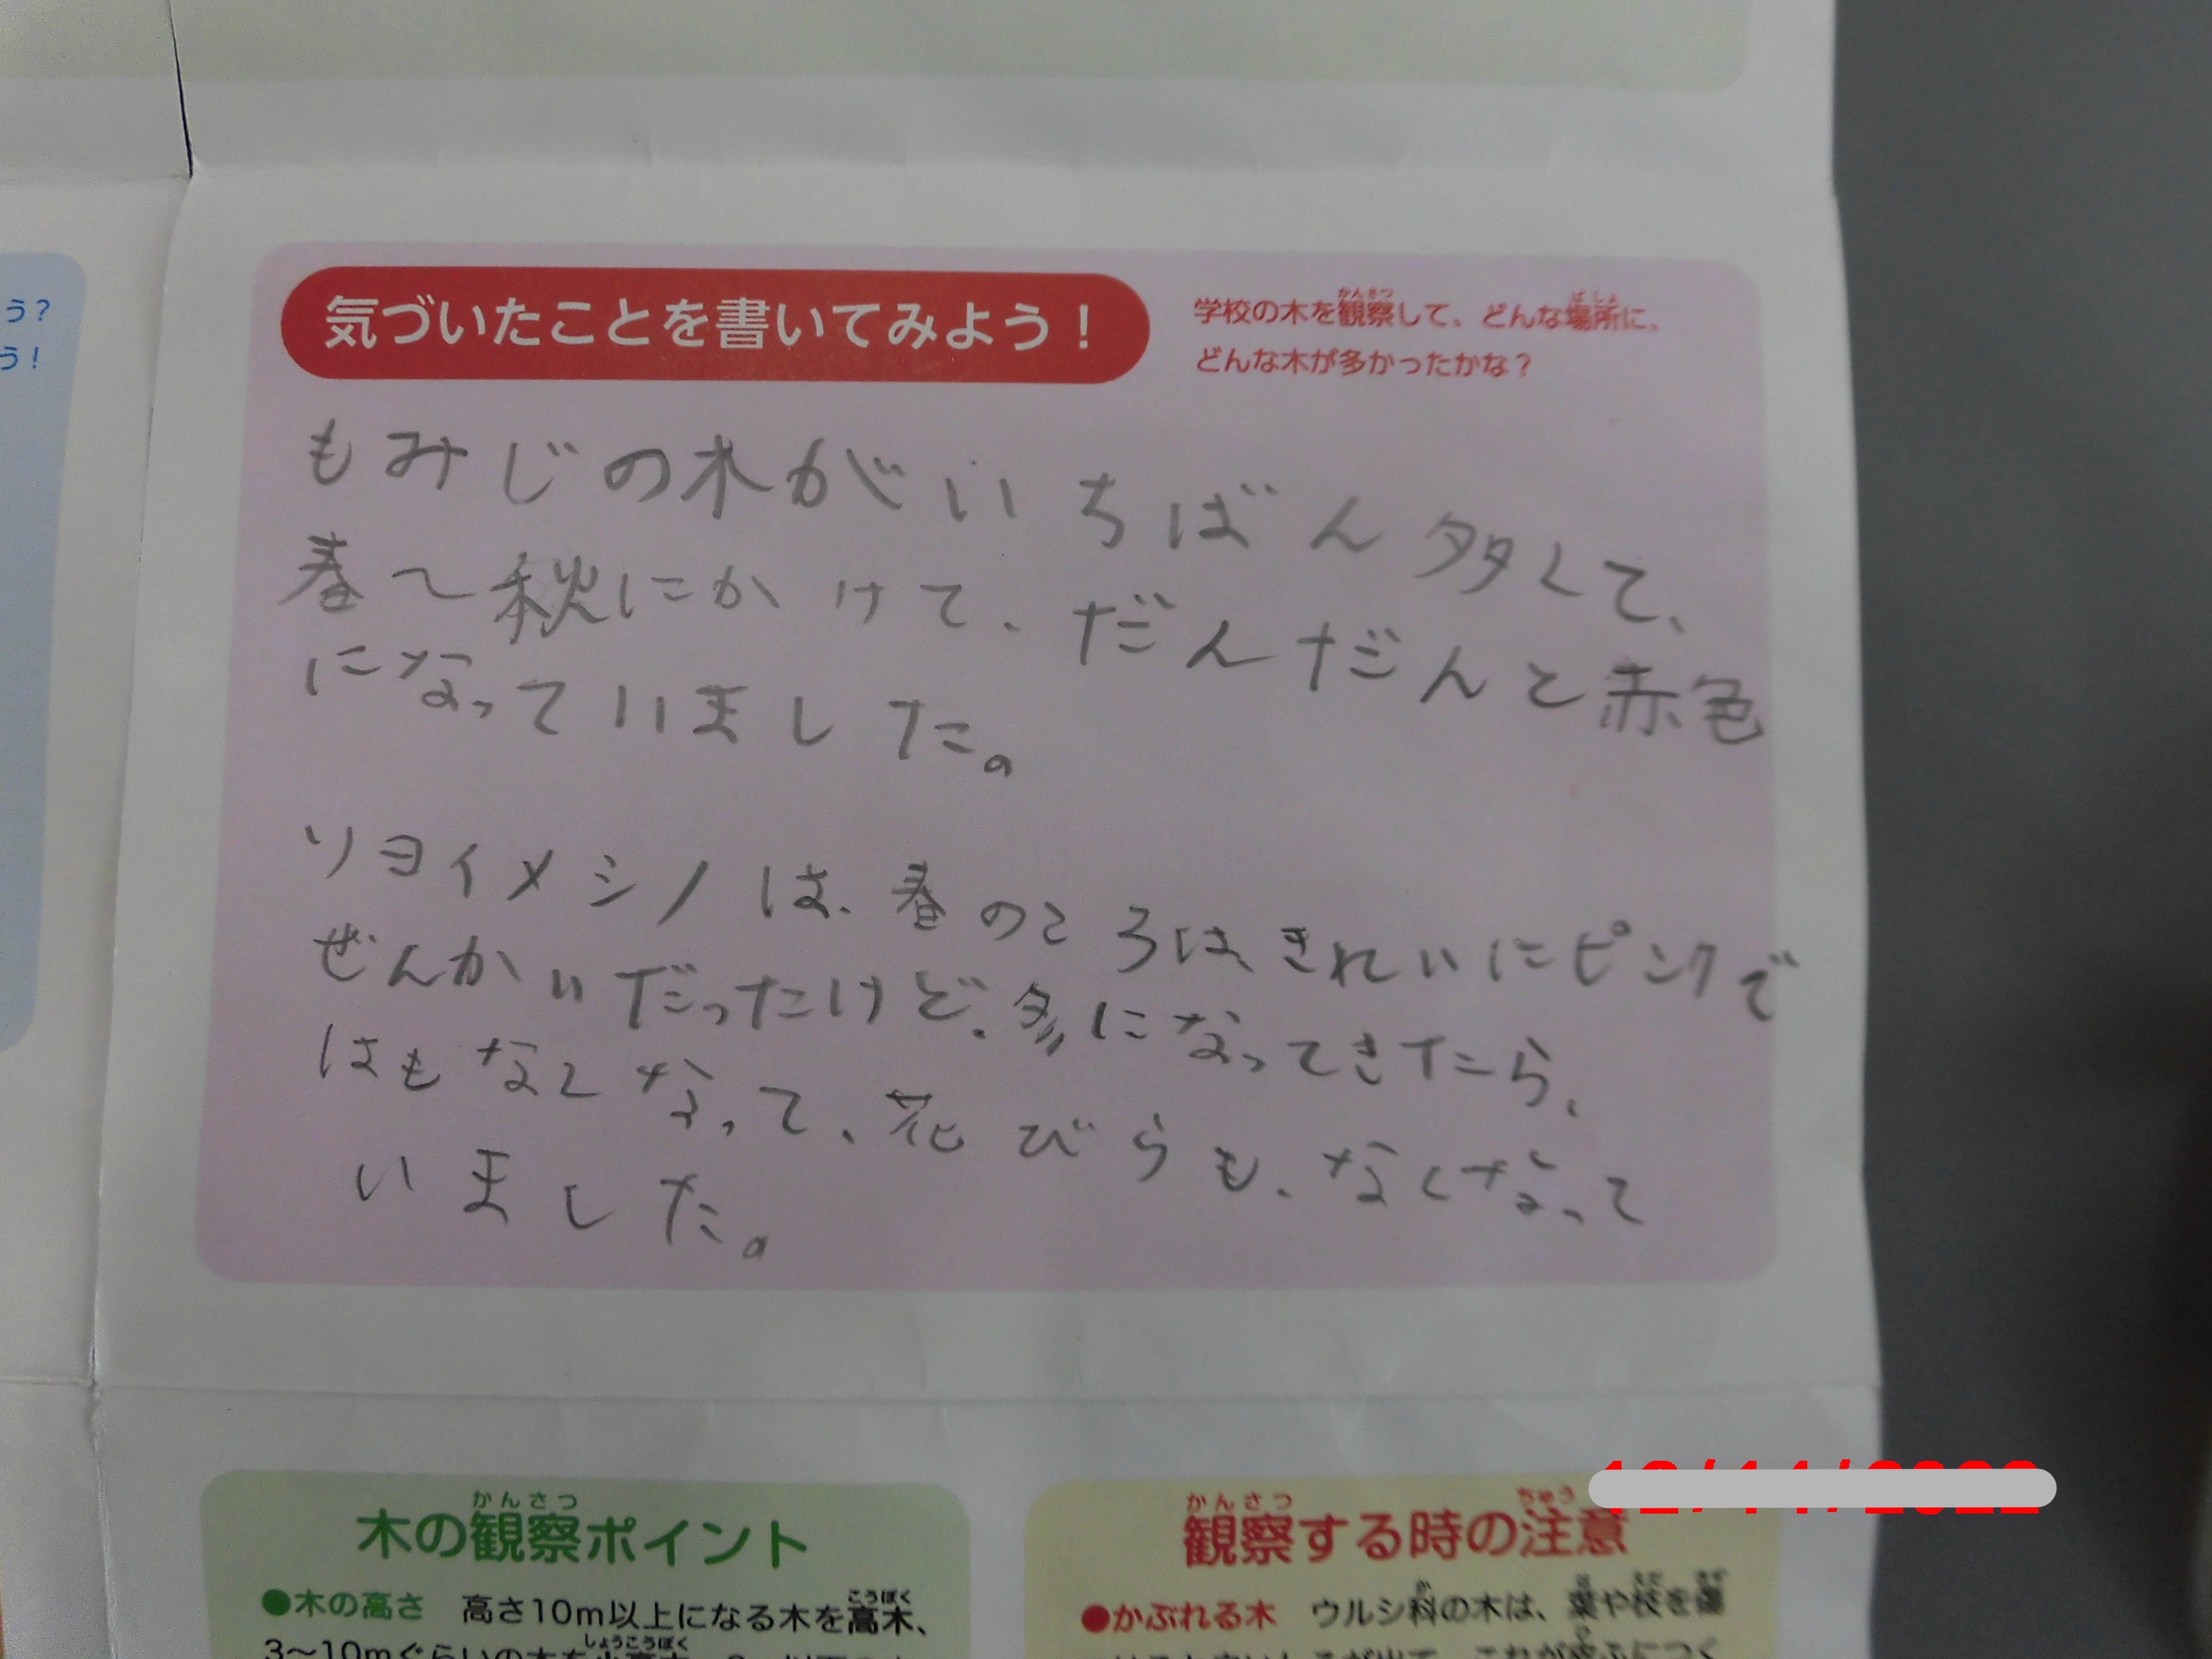 う?
う!
気づいたことを書いてみよう!
学校の木を観察して、どんな場所に、
どんな木が多かったかな?
もみじの木がいちばん多くて、
春〜秋にかけて、だんだんと赤色
になっていました。
ソヨイメシノは、春のころは、きれいにピンクで
ぜんかいだったけど、冬になってきたら、
はもなくなって、花びらも、なくなって
いました。
木の観察ポイント
●木の高さ 高さ10m以上になる木を高木、
3〜10mぐらいの木を小高木
観察する時の注意
●かぶれる木 ウルシ科の木は、葉や枝を傷